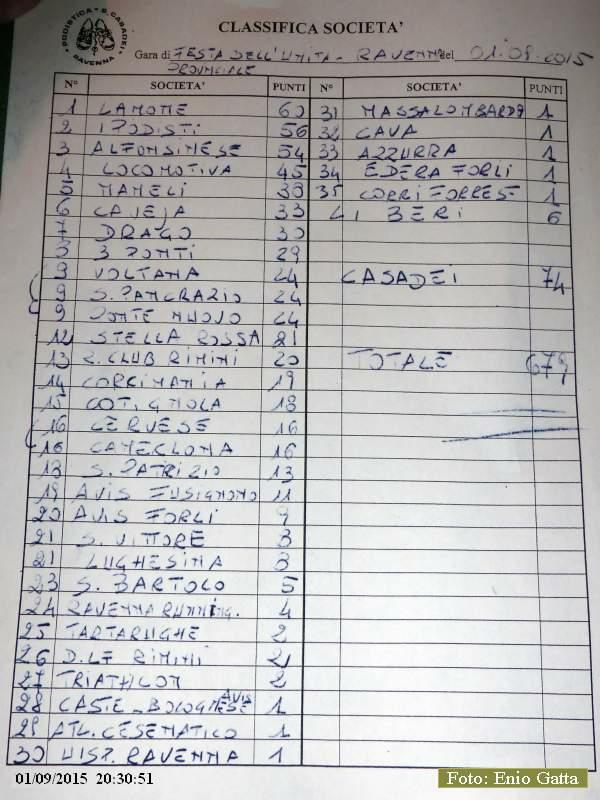 PODISTICA S. CASADEI RAVENNA
CLASSIFICA SOCIETA'
Gara di FESTA DELL'UNITA - RAVENNA del 01.09.2015
PROVINCIALE
N° SOCIETA' PUNTI N° SOCIETA' PUNTI
1 LAMONE 60 31 MASSALOMBARDA 1
2 I PODISTI 56 32 CAVA 1
3 ALFONSINESE 54 33 AZZURRA 1
4 LOCOMOTIVA 45 34 EDERA FORLI 1
5 MAMELI 39 35 CORRI FORREST 1
6 CAVEJA 33 LI BERI 6
7 DRAGO 30
8 3 PONTI 29
9 VOLTANA 24 CASADEI 74
9 S. PANCRAZIO 24
9 PONTE NUOVO 24
12 STELLA ROSSA 21
13 R. CLUB RIMINI 20 TOTALE 679
14 CORRIMANIA 19
15 COTIGNOLA 18
16 CERVESE 16
16 CAMERLONA 16
18 S. PATRIZIO 13
19 AVIS FUSIGNANO 11
20 AVIS FORLI 9
21 S. VITTORE 8
21 LUGHESINA 8
23 S. BARTOLO 5
24 RAVENNA RUNNING. 4
25 TARTARUGHE 2
26 D.L.F RIMINI 2
27 TRIATHLON 2
28 CASTE_BOLOGNESE AVIS 1
29 ATL. CESENATICO 1
30 UISP. RAVENNA 1
01/09/2015 20:30:51
Foto: Enio Gatta